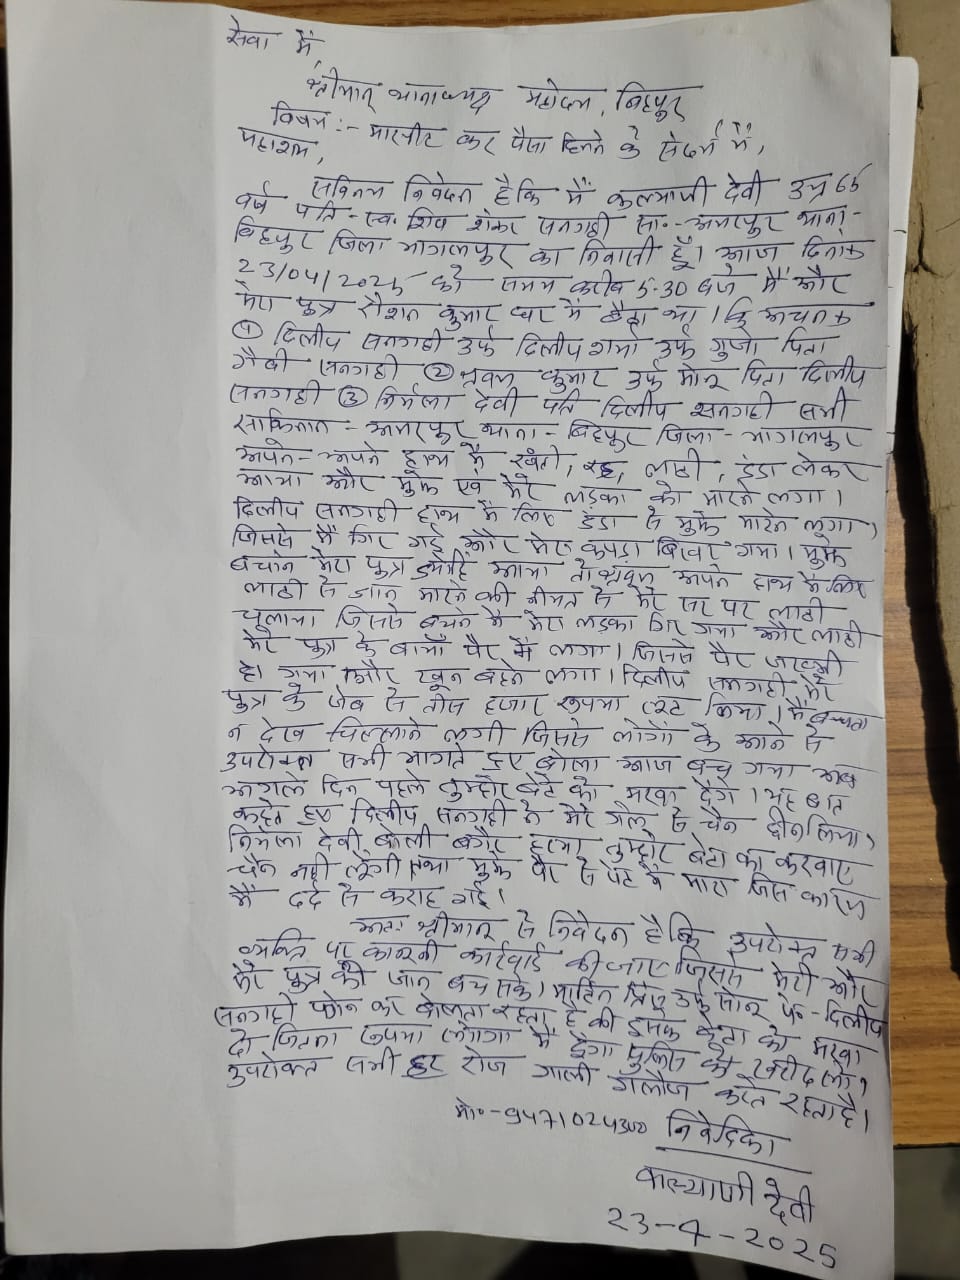 सेवा में,
श्रीमान् थानाध्यक्ष महोदय, बिहपुर
विषय:- मारपीट कर पैसा छिनने के संदर्भ में,
महाशय,
सविनय निवेदन है कि मैं कल्याणी देवी उम्र 65
वर्ष पति- स्व. शिव शंकर सनगही सा०- अमरपुर थाना-
बिहपुर जिला भागलपुर का निवासी हूँ। आज दिनांक
23/04/2025 को समय करीब 5:30 बजे मैं और
मेरा पुत्र रौशन कुमार घर में बैठा था। कि अचानक
① दिलीप सनगही उर्फ दिलीप शर्मा उर्फ गुजो पिता
सनगही ② श्रवण कुमार उर्फ मोनू पिता दिलीप
सनगही ③ निर्मला देवी पति दिलीप सनगही सभी
साकिनान- अमरपुर थाना- बिहपुर जिला- भागलपुर
अपने-अपने हाथ में खंती, रड, लाठी, डंडा लेकर
आया और मुझे एवं मेरे लड़का को मारने लगा।
दिलीप सनगही हाथ में लिए डंडा से मुझे मारने लगा,
जिससे मैं गिर गई और मेरा कपड़ा बिखर गया। मुझे
बचाने मेरा पुत्र आया तो श्रवण अपने हाथ में लिए
लाठी से जान मारने की नीयत से मेरे सर पर लाठी
चलाया जिससे बचने में मेरा लड़का गिर गया और लाठी
मेरे पुत्र के बायाँ पैर में लगा। जिससे पैर जख्मी
हो गया और खून बहने लगा। दिलीप सनगही मेरे
पुत्र के जेब से तीस हजार रूपया लूट लिया। मैं बचता
न देख चिल्लाने लगी जिससे लोगों के आने से
उपरोक्त सभी भागते हुए बोला आज बच गया अब
अगले दिन पहले तुम्हारे बेटे को मरवा देंगे। यह बात
कहते हुए दिलीप सनगही ने मेरे गले से चैन छीन लिया,
निर्मला देवी बोली बगैर हत्या तुम्हारे बेटा का करवाए
चैन नहीं लेंगी तथा मुझे पैर से पेट में मारा जिस कारण
मैं दर्द से कराह गई।
अतः श्रीमान से निवेदन है कि उपरोक्त सभी
व्यक्ति पर कानूनी कार्रवाई की जाए जिससे मेरी और
मेरे पुत्र की जान बच सके। उर्फ सोनू पे०- दिलीप
सनगही फोन कर बोलता रहता है की इसके बेटा को मरवा
दो जितना रूपया लगेगा मैं दूंगा पुलिस को खरीद लो,
उपरोक्त सभी हर रोज गाली गलौज करते रहता है।
मो०-9471024300 निवेदिका
कल्याणी देवी
23-4-2025